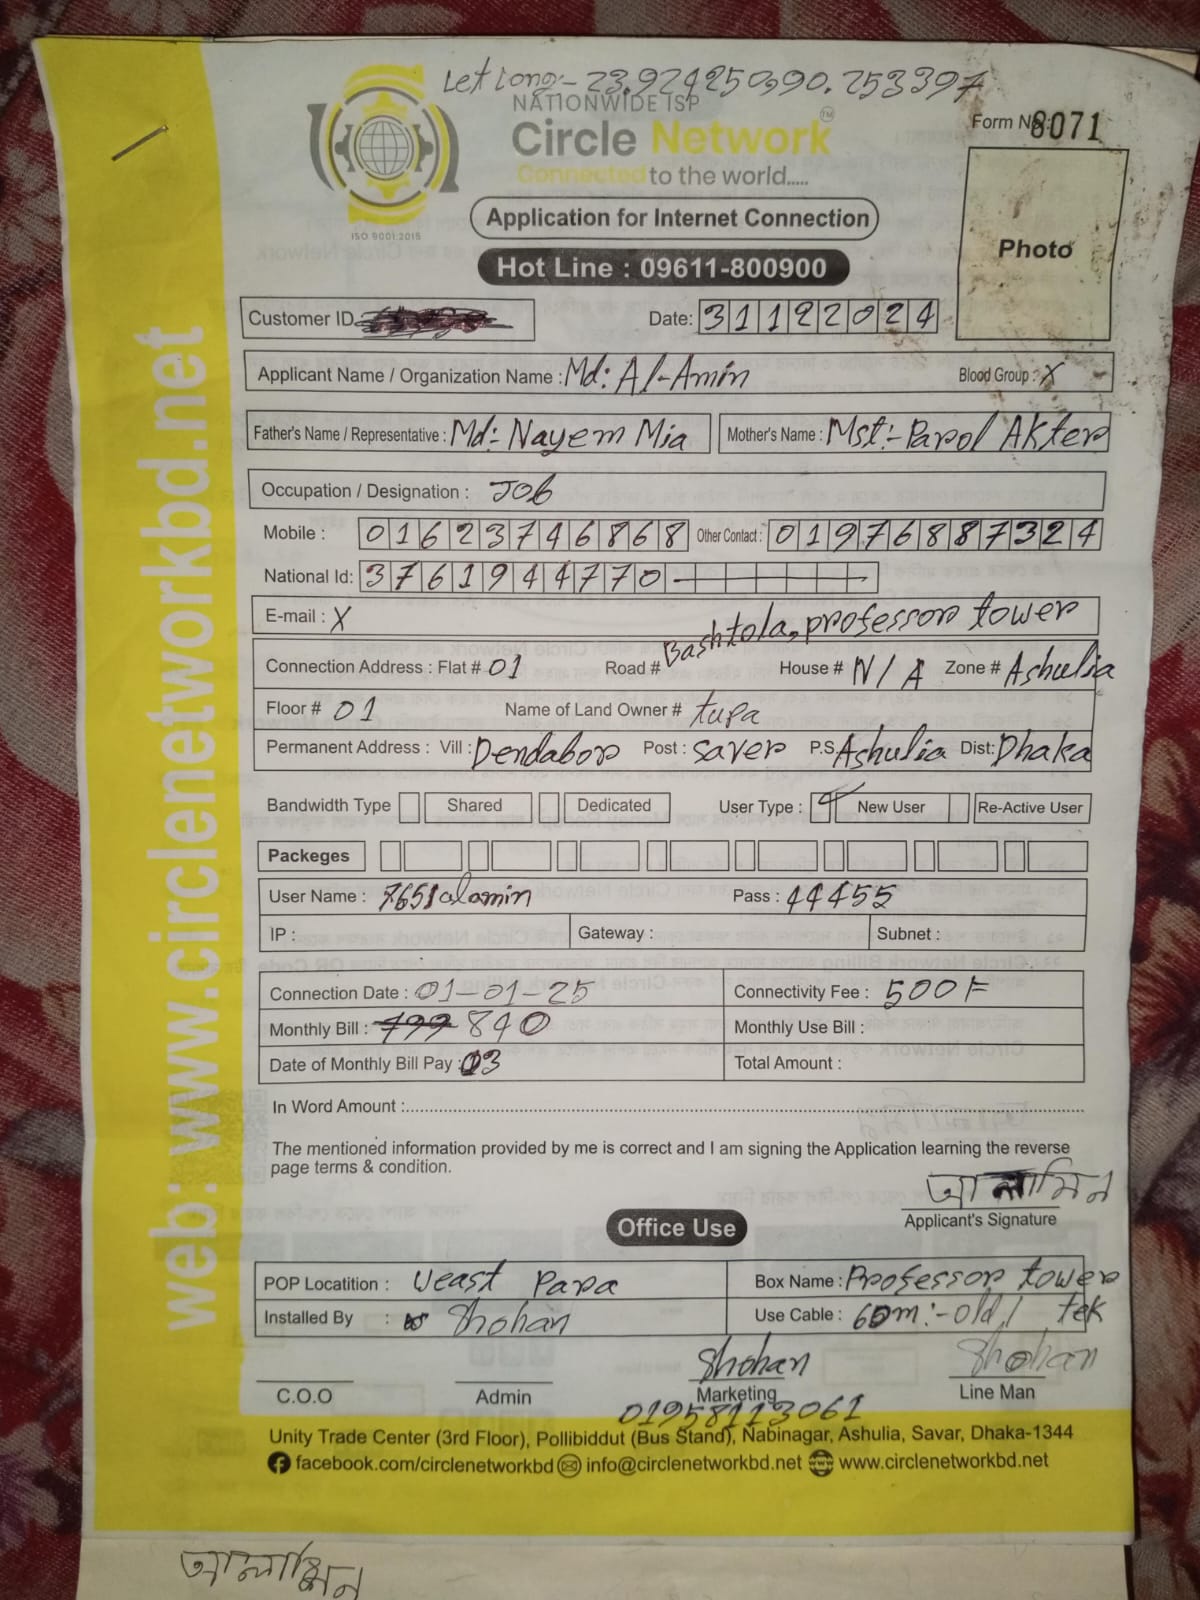 Let Long:- 23.924250,90.253397
NATIONWIDE ISP
Circle Network TM
Connected to the world.....
Form No: 8071
ISO 9001:2015
Application for Internet Connection
Photo
Hot Line : 09611-800900
Customer ID
Date: 31122024
Applicant Name / Organization Name : Md: Al-Amin Blood Group : X
Father's Name / Representative : Md:- Nayem Mia Mother's Name : Mst:- Parol Akter
Occupation / Designation : Job
Mobile : 01623746868 Other Contact : 01976887324
National Id: 3761944770
E-mail : X
Connection Address : Flat # 01 Road # Bashtola, professor tower House # N/A Zone # Ashulia
Floor # 01 Name of Land Owner # tupa
Permanent Address : Vill : Dendabor Post : saver P.S. Ashulia Dist: Dhaka
Bandwidth Type Shared Dedicated User Type : New User Re-Active User
Packeges
User Name : 7651alamin Pass : 44455
IP : Gateway : Subnet :
Connection Date : 01-01-25 Connectivity Fee : 500 F
Monthly Bill : 799 840 Monthly Use Bill :
Date of Monthly Bill Pay : 03 Total Amount :
In Word Amount :
The mentioned information provided by me is correct and I am signing the Application learning the reverse
page terms & condition.
আলামিন
Applicant's Signature
Office Use
POP Locatition : Weast Para Box Name : Professor tower
Installed By : Shohan Use Cable : 60m:- old / tek
Shohan Shohan
C.O.O Admin Marketing Line Man
01958113061
Unity Trade Center (3rd Floor), Pollibiddut (Bus Stand), Nabinagar, Ashulia, Savar, Dhaka-1344
facebook.com/circlenetworkbd info@circlenetworkbd.net www.circlenetworkbd.net
web: www.circlenetworkbd.net
আলামিন